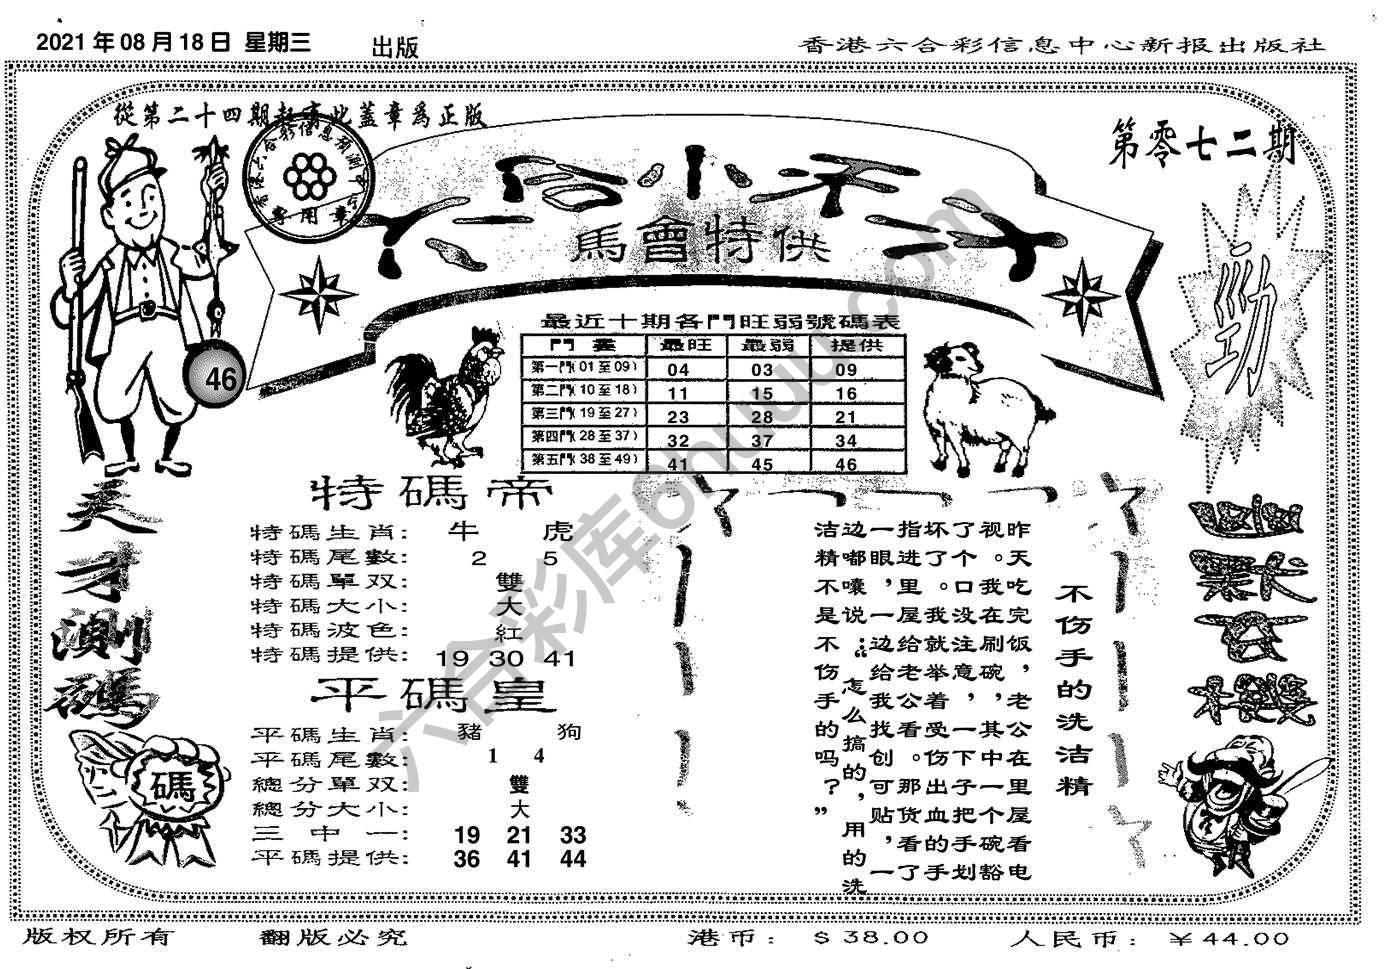 2021年08月18日 星期三 出版
香港六合彩信息中心新报出版社
從第二十四期起寄此蓋章爲正版
第零七二期
馬會特供
專用章
勁
46
最近十期各門旺弱號碼表
最旺 最弱 提供
第一門(01至09) 04 03 09
第二門(10至18) 11 15 16
第三門(19至27) 23 28 21
第四門(28至37) 32 37 34
第五門(38至49) 41 45 46
天才測碼
碼
特碼帝
特碼生肖: 牛 虎
特碼尾數: 2 5
特碼單双: 雙
特碼大小: 大
特碼波色: 紅
特碼提供: 19 30 41
平碼皇
平碼生肖: 豬 狗
平碼尾數: 1 4
總分單双: 雙
總分大小: 大
三中一: 19 21 33
平碼提供: 36 41 44
不伤手的洗洁精
昨天吃完饭,老公在里屋看电
视。我在刷碗,其中一个碗豁
了个口没注意,一下子把手划
坏了。我就举着受伤出血的手
指进里屋给老公看。那货看了
一眼,一边给我找创可贴,一
边嘟囔说:“怎么搞的,用的洗
洁精不是不伤手的吗?”
六合彩库6huuu.com
版权所有 翻版必究 港币: $38.00 人民币: ¥44.00